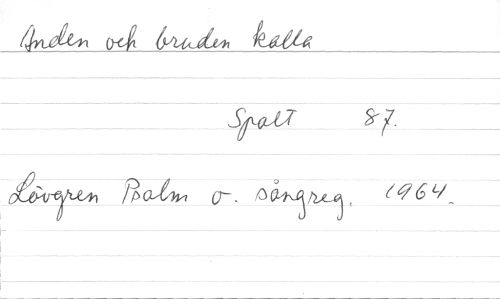 Anden och bruden kalla
Spalt 87.
Lövgren Psalm o. sångreg. 1964.